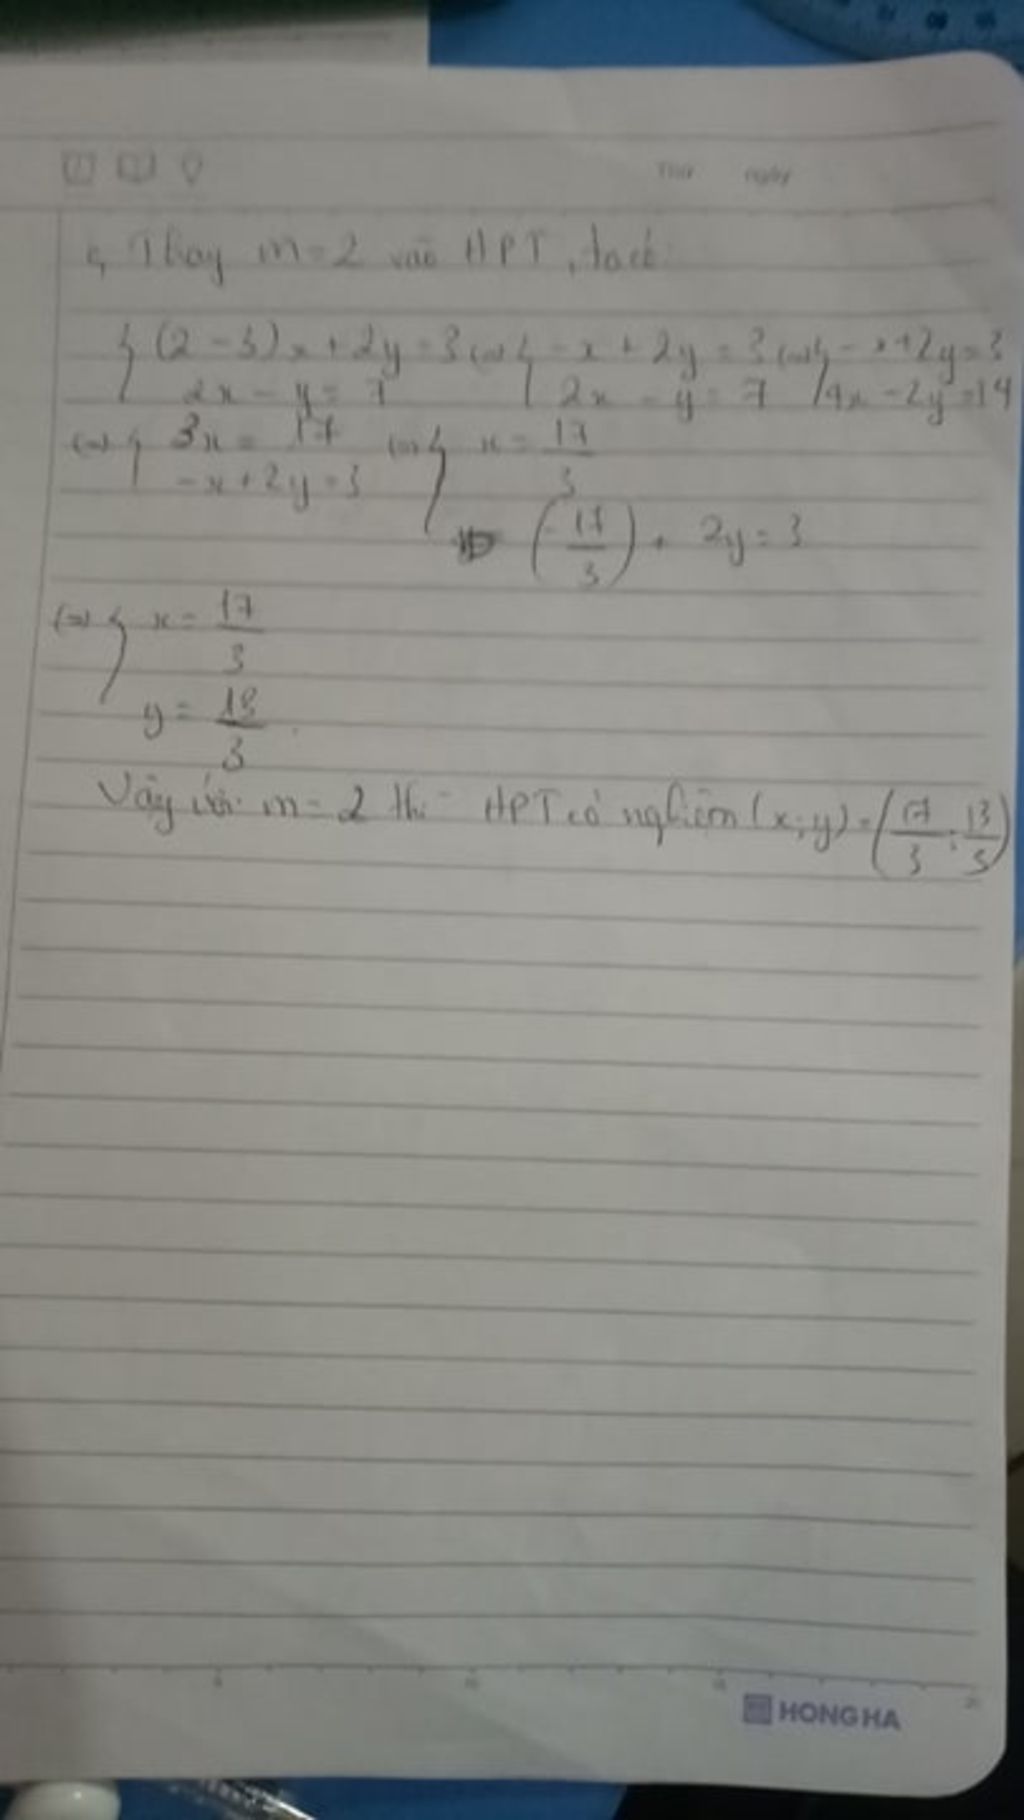 Thứ ngày
c, Thay m = 2 vào HPT, ta có:
{ (2 - 3)x + 2y = 3 (=) { -x + 2y = 3 (=) { -x + 2y = 3
2x - y = 7 2x - y = 7 4x - 2y = 14
(=) { 3x = 17 (=) { x = 17/3
-x + 2y = 3 (-17/3) + 2y = 3
(=) { x = 17/3
y = 13/3.
Vậy với m = 2 thì HPT có nghiệm (x; y) = (17/3; 13/3)
5 10 15 20
HONG HA